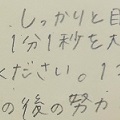 。しっかりと
1分1秒を
ください。1
の後の努力